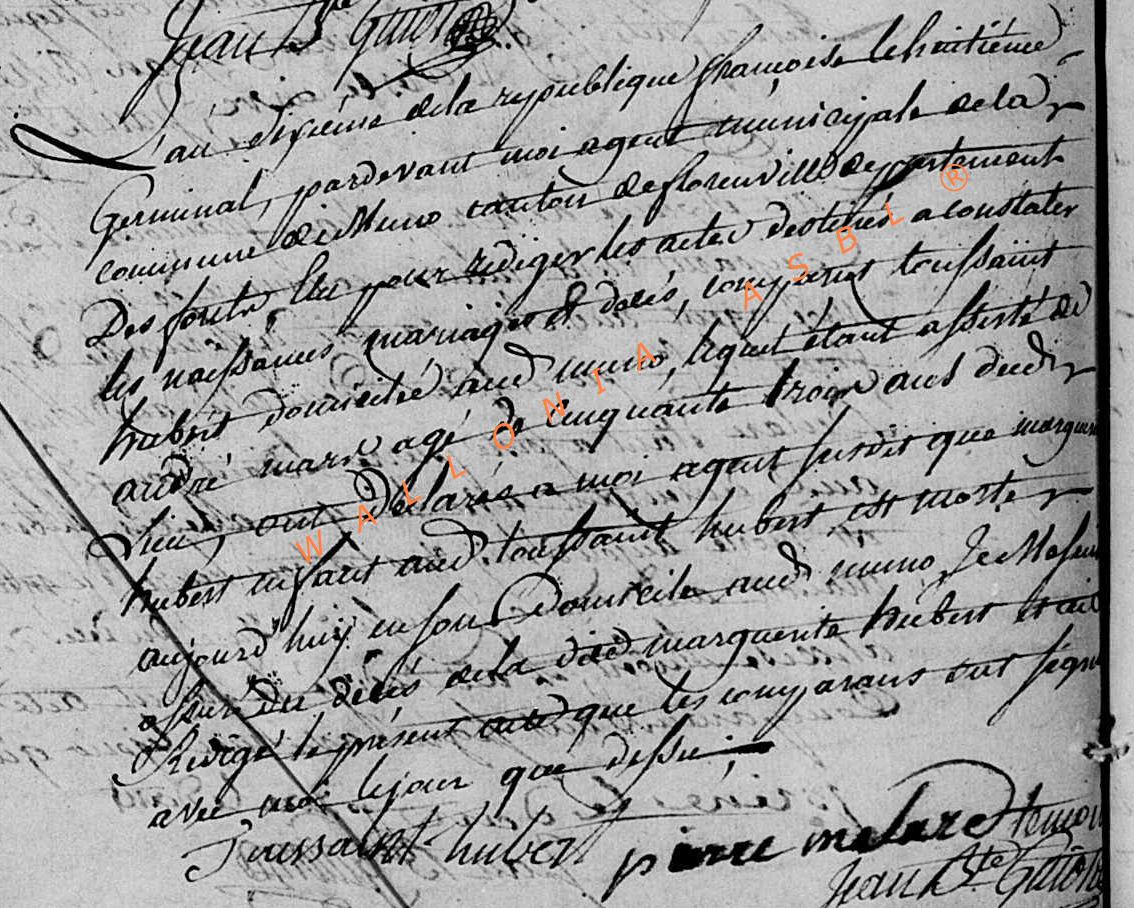 Jean Bte Guiot
L'an sixieme de la republique françoise le huitieme
Germinal, pardevant moi agent municipale de la
commune de Muno canton de florenville departement
Des forêts Elu pour rediger les actes destinés a constater
les naissances mariages & décés, comparut toussaint
hubert domicilié aud muno, lequel étant assisté de
andré marx agé de cinquante trois ans dud
lieu, ont déclarés a moi agent susdit que marguerite
hubert enfant aud toussaint hubert est morte
aujourd'huy en son domicile aud muno, Je me suis
assuré du décés de la dite marguerite hubert et ai
Redigé le présent acte que les comparans ont signé
avec moi le jour que dessu,
Toussaint hubert pierre temoin
Jean Bte Guiot
WALLONIA ASBL ®